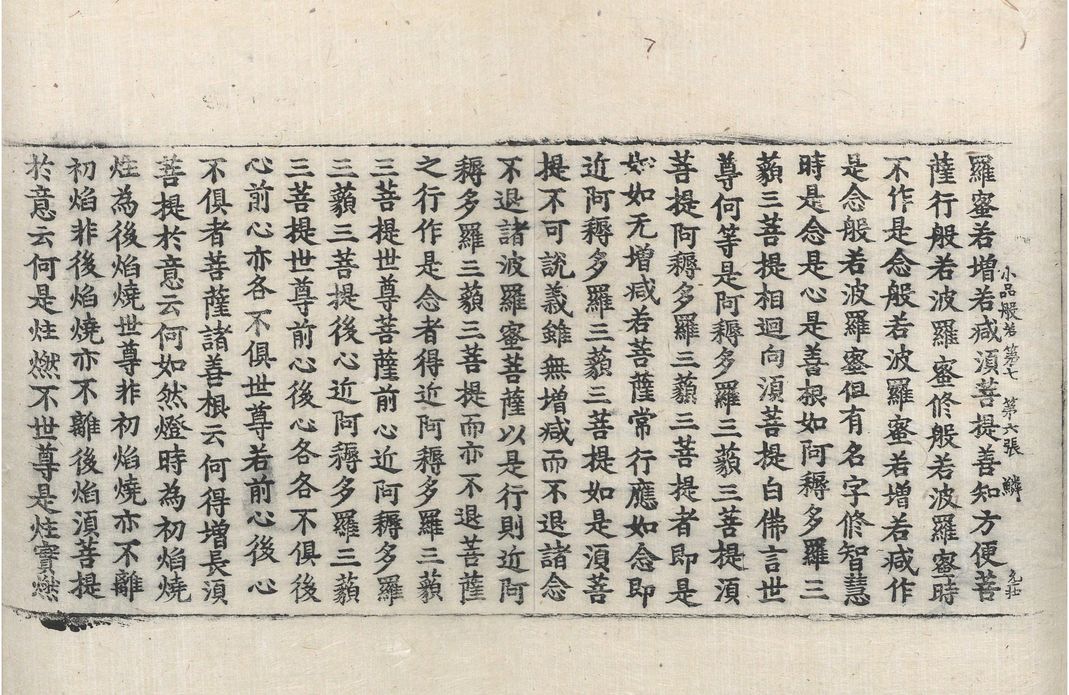 小品般若第七 第六張 鱗 允壯
羅蜜若增若减須菩提善知方便菩
薩行般若波羅蜜修般若波羅蜜時
不作是念般若波羅蜜若增若减作
是念般若波羅蜜但有名字修智慧
時是念是心是善根如阿耨多羅三
藐三菩提相迴向須菩提白佛言世
尊何等是阿耨多羅三藐三菩提須
菩提阿耨多羅三藐三菩提者即是
如如无增减若菩薩常行應如念即
近阿耨多羅三藐三菩提如是須菩
提不可說義雖無增减而不退諸念
不退諸波羅蜜菩薩以是行則近阿
耨多羅三藐三菩提而亦不退菩薩
之行作是念者得近阿耨多羅三藐
三菩提世尊菩薩前心近阿耨多羅
三藐三菩提後心近阿耨多羅三藐
三菩提世尊前心後心各各不俱後
心前心亦各不俱世尊若前心後心
不俱者菩薩諸善根云何得增長須
菩提於意云何如然燈時為初焰燒
炷為後焰燒世尊非初焰燒亦不離
初焰非後焰燒亦不離後焰須菩提
於意云何是炷燃不世尊是炷實燃